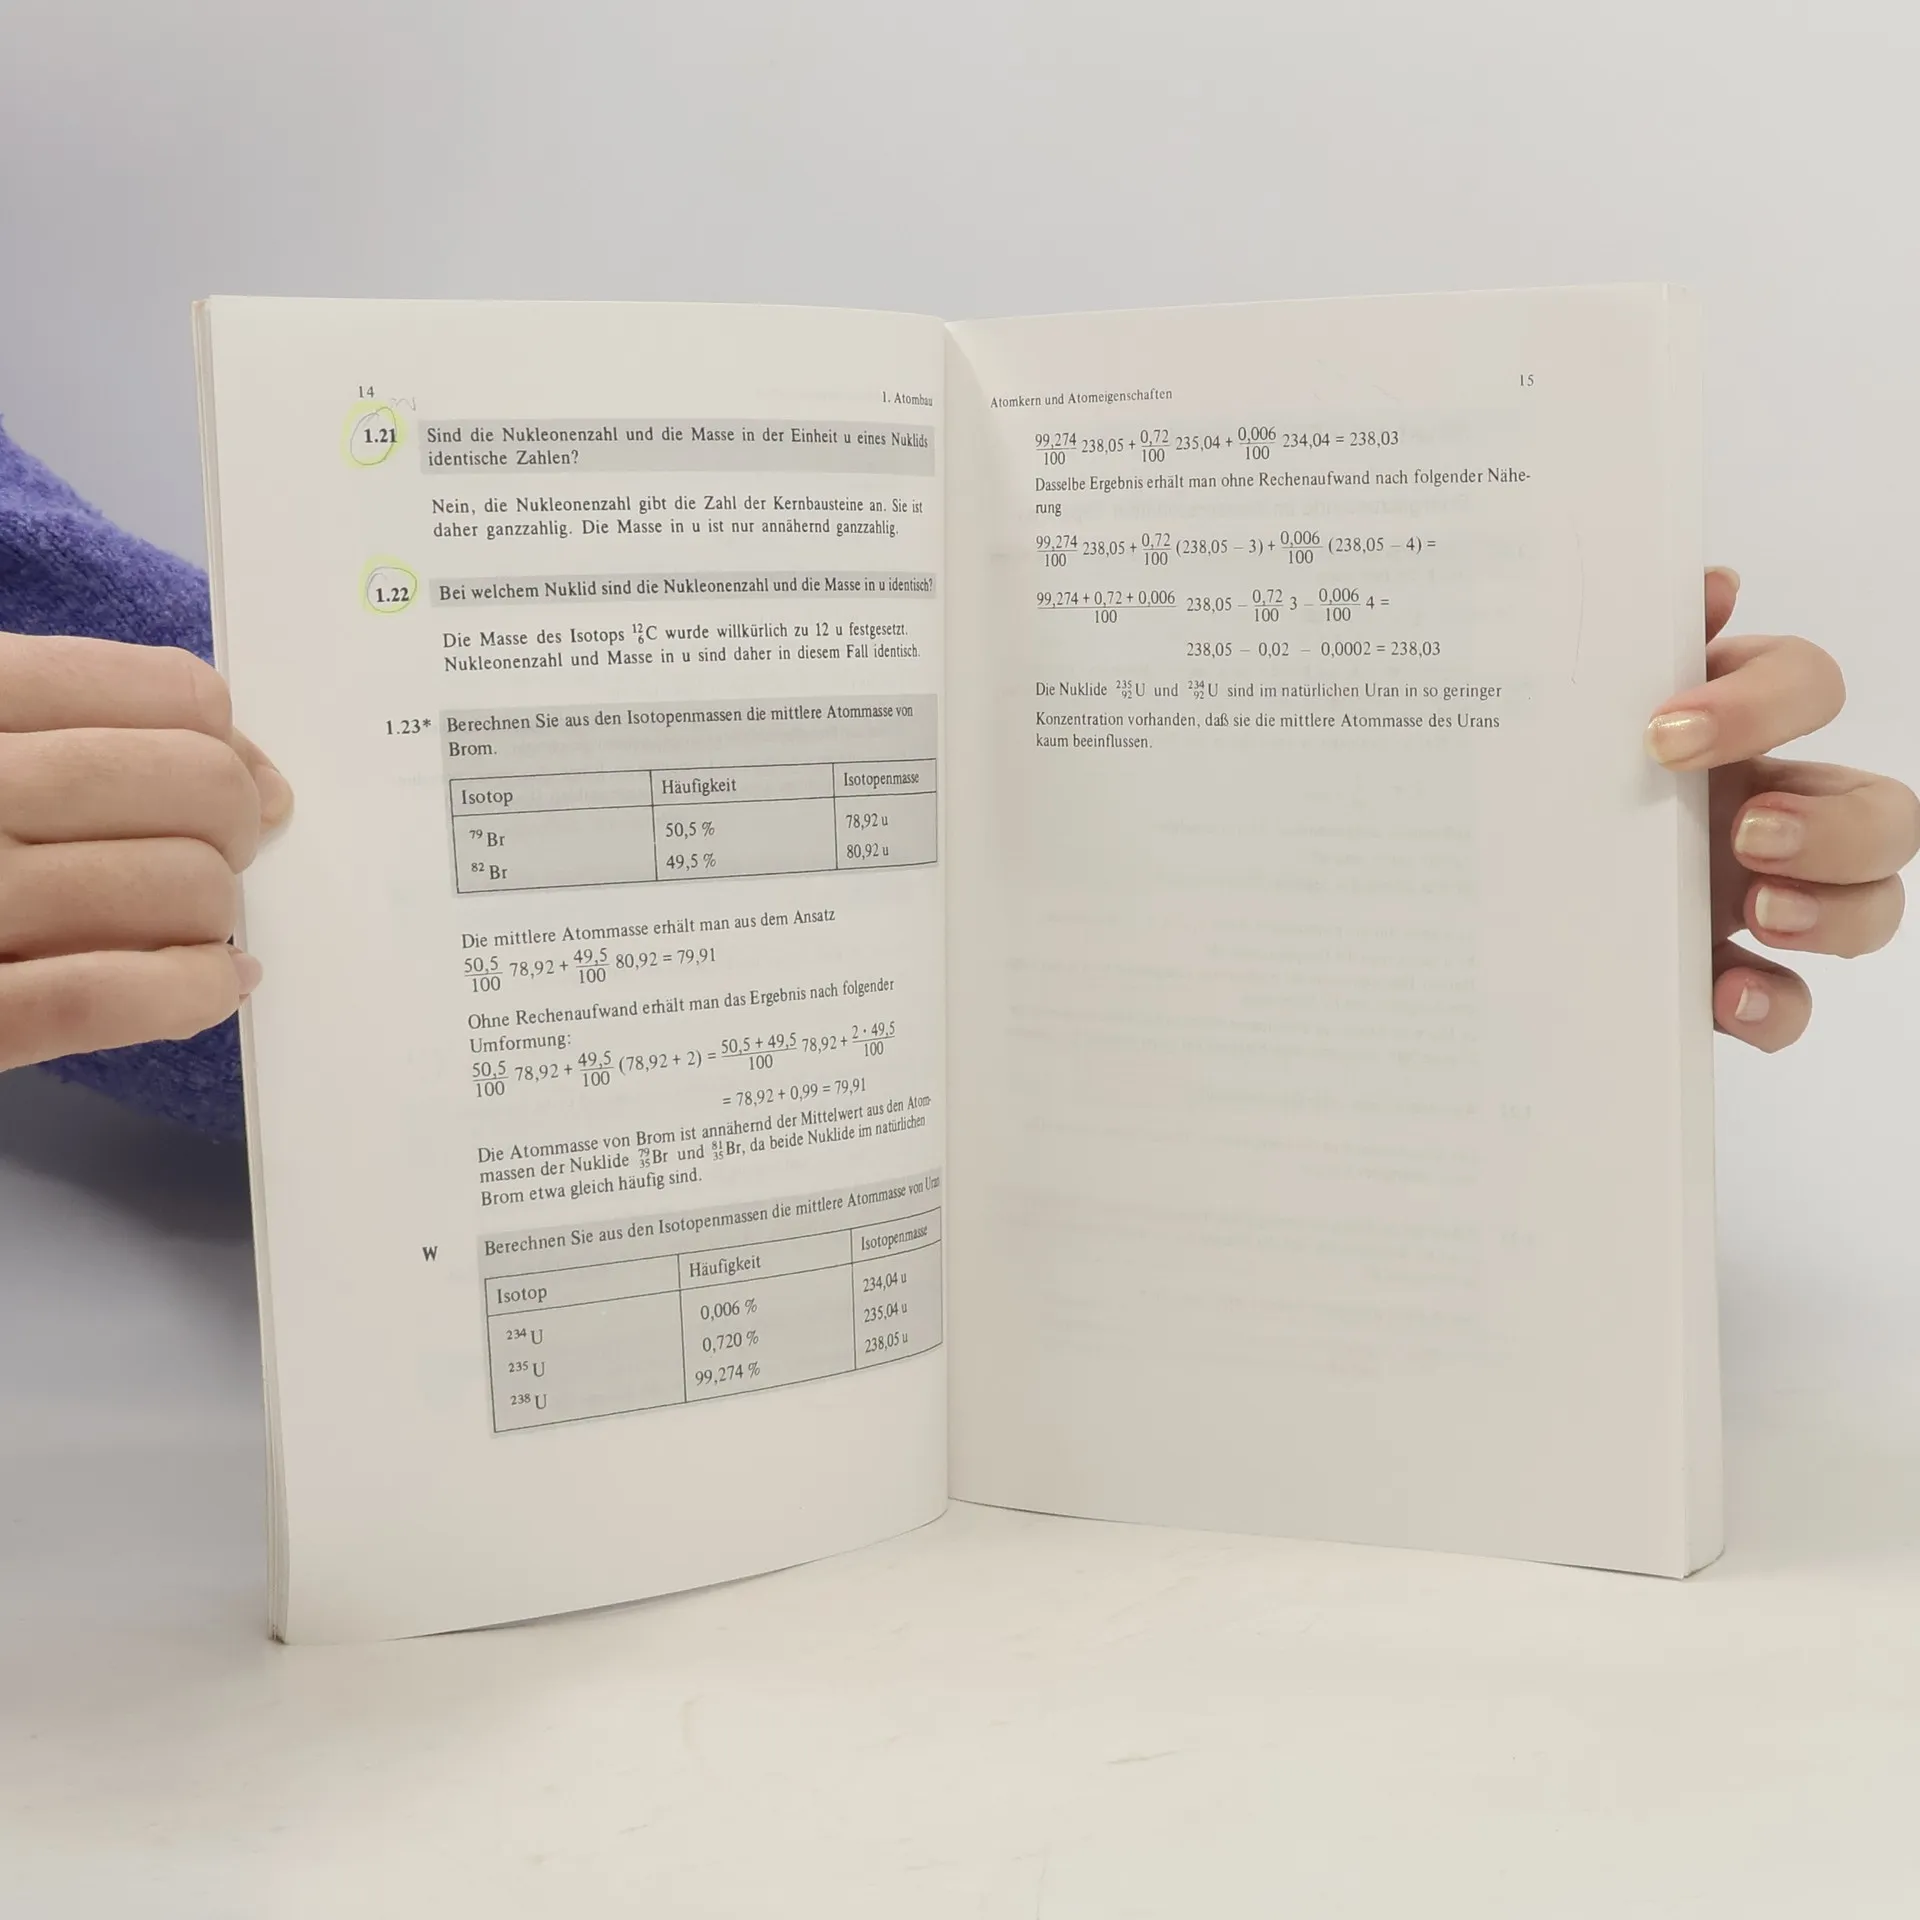 14
1. Atombau
1.21 Sind die Nukleonenzahl und die Masse in der Einheit u eines Nuklids
identische Zahlen?
Nein, die Nukleonenzahl gibt die Zahl der Kernbausteine an. Sie ist
daher ganzzahlig. Die Masse in u ist nur annähernd ganzzahlig.
1.22 Bei welchem Nuklid sind die Nukleonenzahl und die Masse in u identisch?
Die Masse des Isotops ¹²₆C wurde willkürlich zu 12 u festgesetzt.
Nukleonenzahl und Masse in u sind daher in diesem Fall identisch.
1.23* Berechnen Sie aus den Isotopenmassen die mittlere Atommasse von
Brom.
Isotop Häufigkeit Isotopenmasse
⁷⁹Br 50,5 % 78,92 u
⁸²Br 49,5 % 80,92 u
Die mittlere Atommasse erhält man aus dem Ansatz
50,5/100 78,92 + 49,5/100 80,92 = 79,91
Ohne Rechenaufwand erhält man das Ergebnis nach folgender
Umformung:
50,5/100 78,92 + 49,5/100 (78,92 + 2) = 50,5 + 49,5/100 78,92 + 2 · 49,5/100
= 78,92 + 0,99 = 79,91
Die Atommasse von Brom ist annähernd der Mittelwert aus den Atom-
massen der Nuklide ⁷⁹₃₅Br und ⁸¹₃₅Br, da beide Nuklide im natürlichen
Brom etwa gleich häufig sind.
W Berechnen Sie aus den Isotopenmassen die mittlere Atommasse von Uran
Isotop Häufigkeit Isotopenmasse
²³⁴U 0,006 % 234,04 u
²³⁵U 0,720 % 235,04 u
²³⁸U 99,274 % 238,05 u
Atomkern und Atomeigenschaften
15
99,274/100 238,05 + 0,72/100 235,04 + 0,006/100 234,04 = 238,03
Dasselbe Ergebnis erhält man ohne Rechenaufwand nach folgender Nähe-
rung
99,274/100 238,05 + 0,72/100 (238,05 – 3) + 0,006/100 (238,05 – 4) =
99,274 + 0,72 + 0,006/100 238,05 – 0,72/100 3 – 0,006/100 4 =
238,05 – 0,02 – 0,0002 = 238,03
Die Nuklide ²³⁵₉₂U und ²³⁴₉₂U sind im natürlichen Uran in so geringer
Konzentration vorhanden, daß sie die mittlere Atommasse des Urans
kaum beeinflussen.